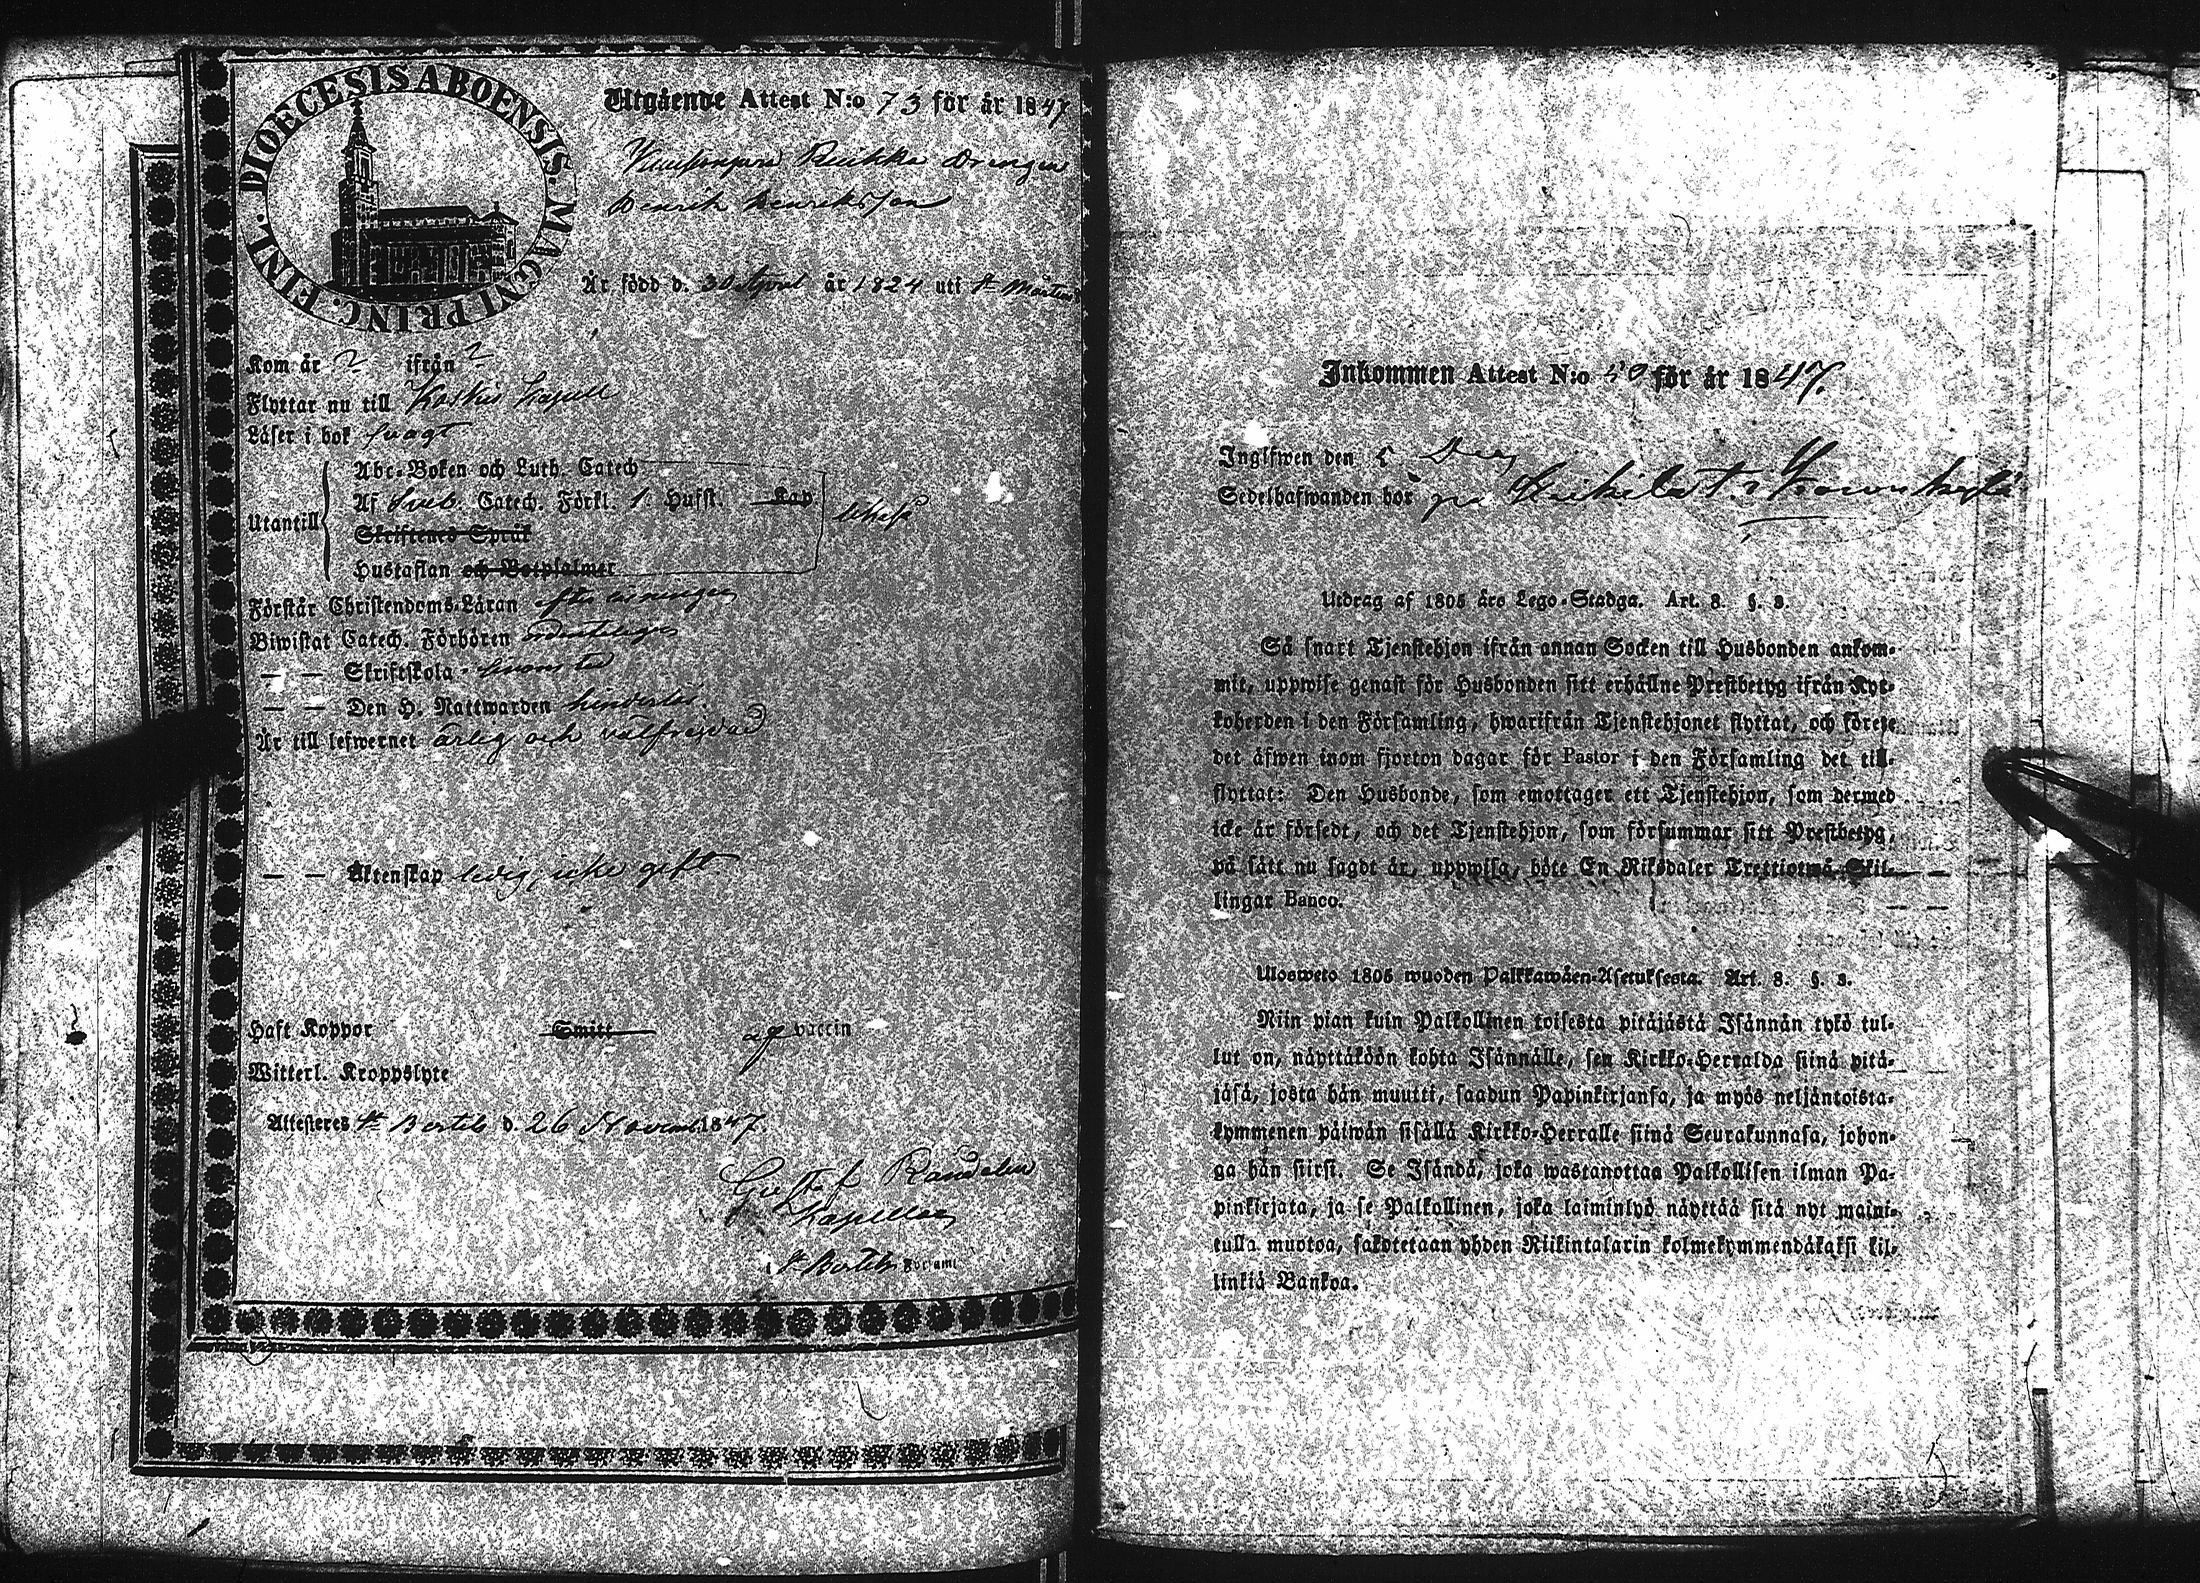 DIOECESIS ABOENSIS. MAGNI PRINC. FINL.
Utgående Attest N:o 73 för år 1847
Ruikka Drengen
Henrik Henriksson
Är född d. 30 April år 1824 uti St Mårtens
Kom år ? ifrån ?
Flyttar nu till Koskis Kapell
Läser i bok svagt
Utantill
Abc-Boken och Luth. Catech
Af Sveb. Catech. Förkl. 1. Hufst. Kap
Skriftenes Språk
Hustaflan och Botpsalmer
Förstår Christendoms-Läran efter läsningen
Biwistat Catech. Förhören ordenteligen
— — Skriftskola
— — Den H. Nattwarden hinderlös.
Är till lefwernet ärlig och välfrejdad
— — Äktenskap ledig, icke gift
Haft Koppor Smitt af vaccin
Witterl. Kroppslyte
Attesteres St Bertils d. 26 Novemb. 1847.
Gustaf Randelin
Kapellan
i St Bertils Församl
Inkommen Attest N:o 50 för år 1847.
Inglfwen den 5 Dec
Sedelhafwanden bor på
Utdrag af 1805 års Lego-Stadga. Art. 8. §. 3.
Så snart Tjenstehjon ifrån annan Socken till Husbonden ankom-
mit, uppwise genast för Husbonden sitt erhållne Prestbetyg ifrån Kyr-
koherden i den Församling, hwarifrån Tjenstehjonet flyttat, och förete
det äfwen inom fjorton dagar för Pastor i den Församling det till-
flyttat: Den Husbonde, som emottager ett Tjenstehjon, som dermed
icke är försedt, och det Tjenstehjon, som försummar sitt Prestbetyg,
på sätt nu sagdt är, uppwisa, böte En Riksdaler Trettiotwå Skil-
lingar Banco.
Ulosweto 1805 wuoden Palkkawäen-Asetuksesta. Art. 8. §. 3.
Niin pian kuin Palkollinen toisesta pitäjästä Isännän tykö tul-
lut on, näyttäköön kohta Isännälle, sen Kirkko-Herralda siinä pitä-
jäsä, josta hän muutti, saadun Papinkirjansa, ja myös neljäntoista-
kymmenen päiwän sisällä Kirkko-Herralle siinä Seurakunnasa, johon-
ga hän siirsi. Se Isändä, joka wastanottaa Palkollisen ilman Pa-
pinkirjata, ja se Palkollinen, joka laiminlyö näyttää sitä nyt maini-
tulla muotoa, sakotetaan yhden Riikintalarin kolmekymmendäkaksi kil-
linkiä Bankoa.